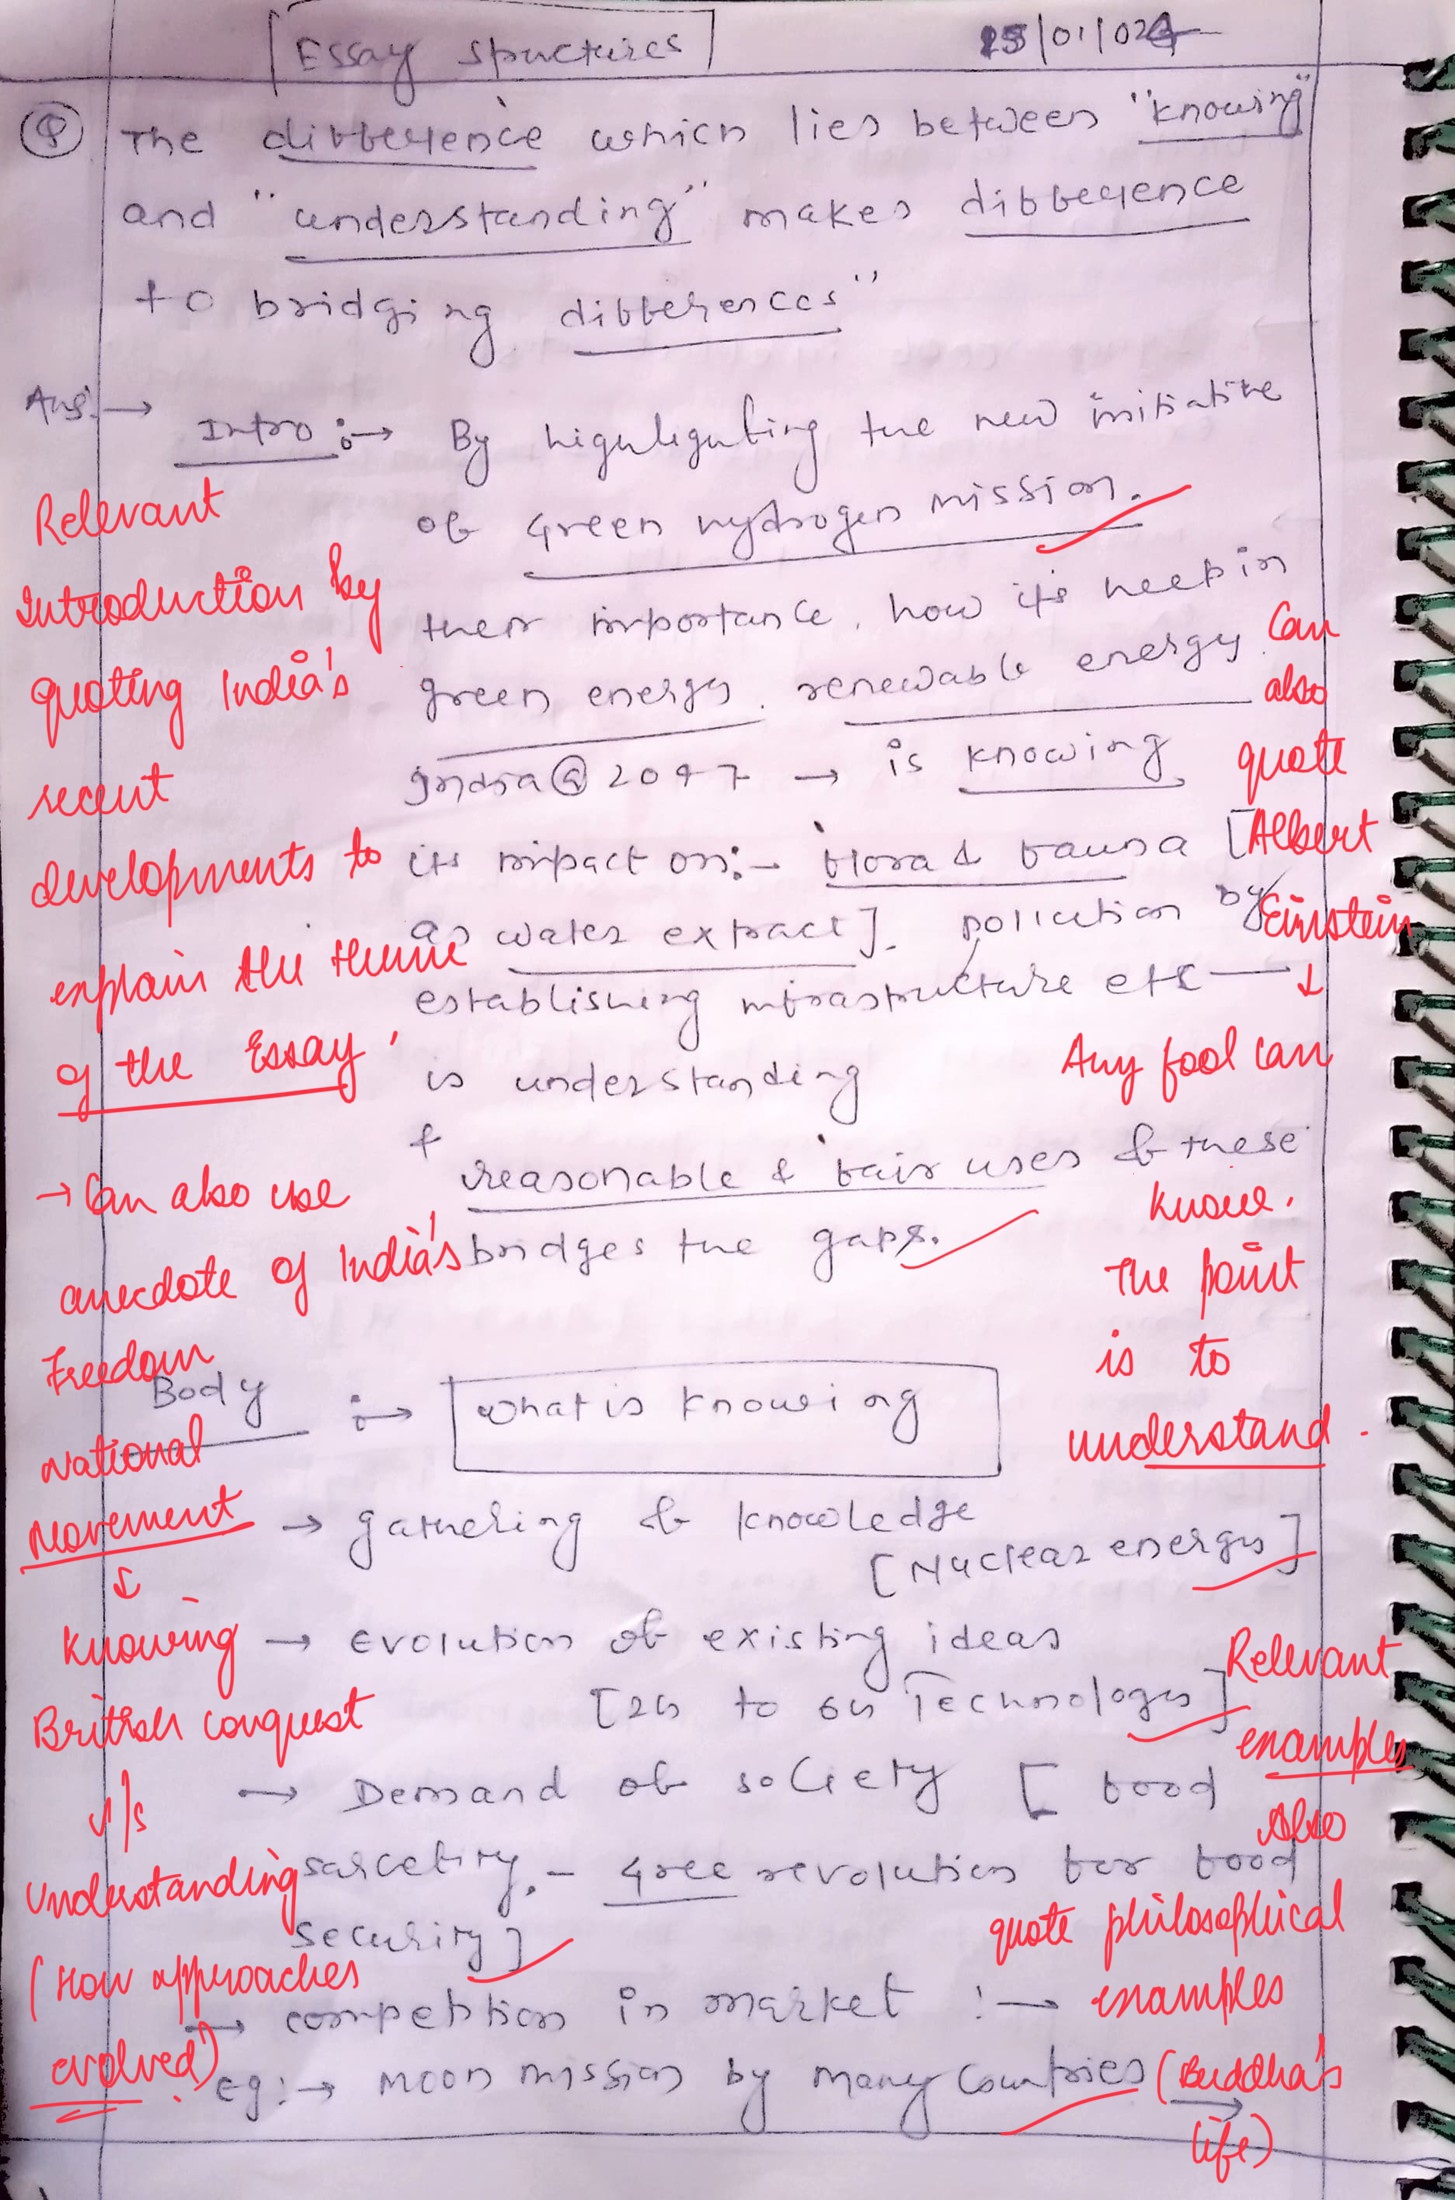 Essay structures
25/01/024
Q The difference which lies between "knowing"
and "understanding" makes difference
to bridging differences"
Ans. → Intro :→ By highlighting the new initiative
of Green hydrogen mission.
their importance, how its help in
green energy. renewable energy.
India@2047 → is knowing,
its impact on:- flora & fauna [
as water extract]. pollution by
establishing infrastructure etc
is understanding
+
reasonable & fair uses of these
bridges the gaps.
Relevant
Introduction by
quoting India's
recent
developments to
explain the theme
of the Essay'
→ Can also use
anecdote of India's
Freedom
National
Movement
↓
Knowing
British conquest
v/s
Understanding
(How approaches
evolved)
Can
also
quote
Albert
Einstein
↓
Any fool can
know.
The point
is to
understand.
Body :→ What is knowing
→ gathering of knowledge
[Nuclear energy]
→ evolution of existing ideas
[2G to 6G Technology]
→ Demand of society [food
sarcetiry,- Gree revolution for food
security]
→ competition in market :→
eg:→ Moon mission by many countries
Relevant
examples
Also
quote philosophical
examples
(Buddha's
life)